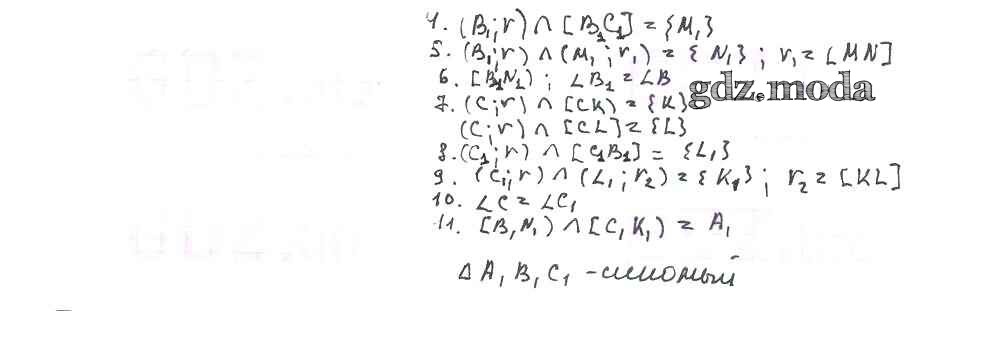 4. (B₁;r) ∩ [B₁C₁] = {M₁}
5. (B₁;r) ∩ (M₁;r₁) = {N₁}; r₁ = [MN]
6. [B₁N₁); ∠B₁ = ∠B
gdz.moda
7. (C;r) ∩ [CK) = {K}
(C;r) ∩ [CL] = {L}
8. (C₁;r) ∩ [C₁B₁] = {L₁}
9. (C₁;r) ∩ (L₁;r₂) = {K₁}; r₂ = [KL]
10. ∠C = ∠C₁
11. [B₁N₁) ∩ [C₁K₁) = A₁
Δ A₁B₁C₁ - искомый